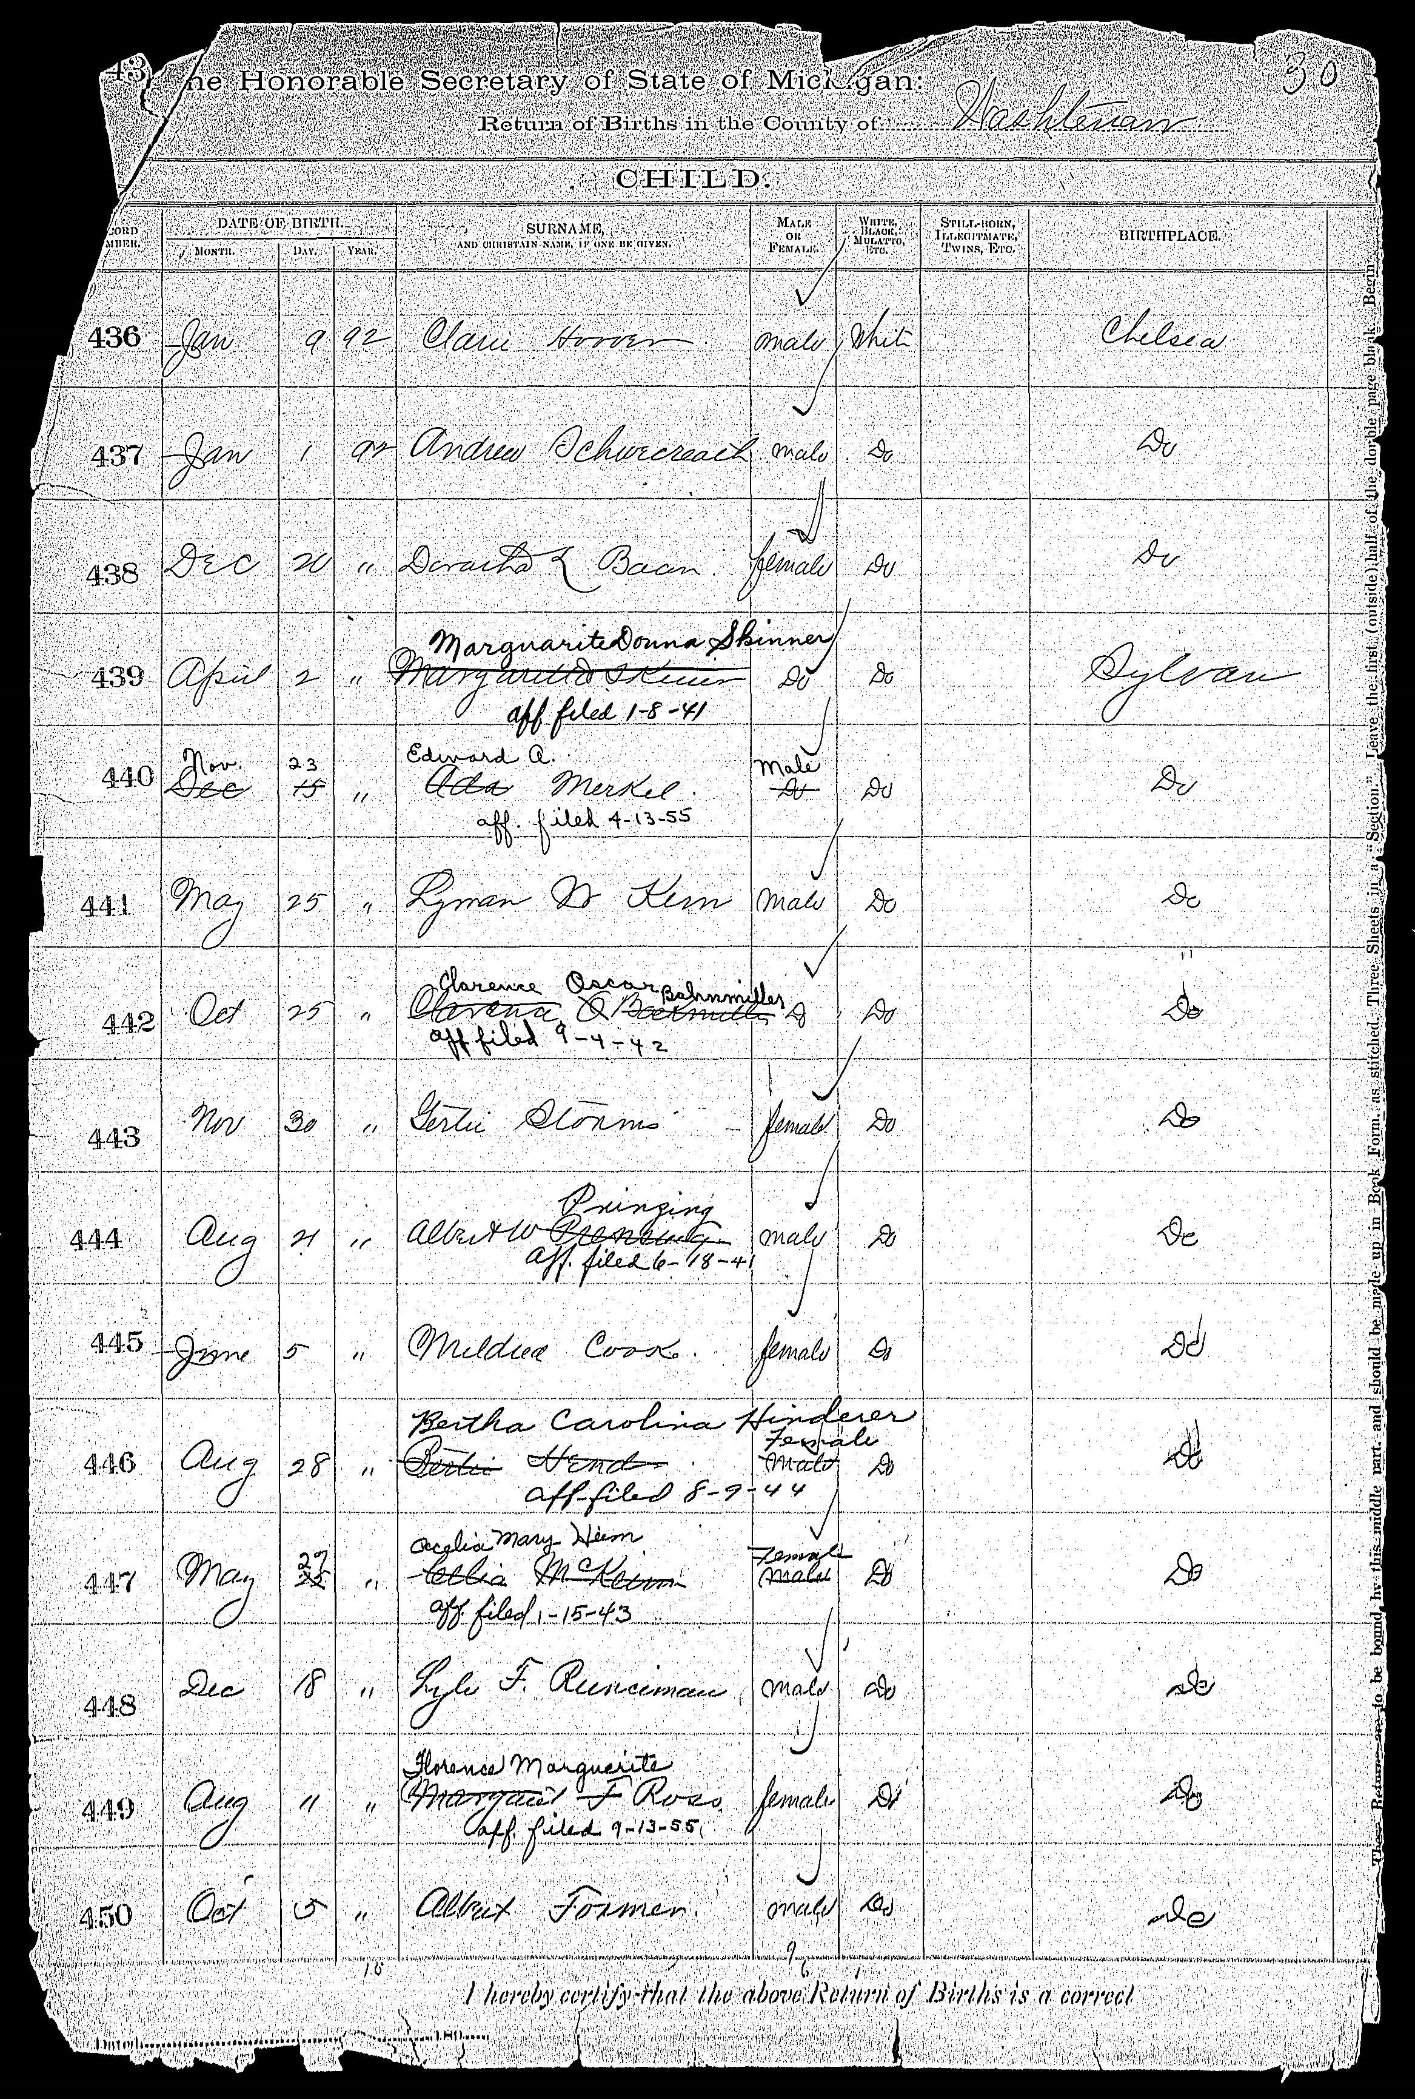 43
he Honorable Secretary of State of Michigan:
30
Return of Births in the County of Washtenaw
CHILD.
DATE OF BIRTH.
SURNAME, AND CHRISTAIN NAME, IF ONE BE GIVEN.
MALE OR FEMALE.
WHITE, BLACK, MULATTO, ETC.
STILL-BORN, ILLEGITMATE, TWINS, ETC.
BIRTHPLACE.
MONTH. DAY. YEAR.
436 Jan 9 92 Clair Hoover male White Chelsea
437 Jan 1 92 Andrew male Do Do
438 Dec 20 " female Do Do
Marguarite Donna Skinner
439 April 2 " Do Do Sylvan
aff filed 1-8-41
Nov. 23 Edward A. Male
440 Dec 15 " Ada Merkel. Do Do Do
aff. filed 4-13-55
441 May 25 " Lyman W Kern Male Do Do
Clarence Oscar Bahnmiller
442 Oct 25 " O Do Do
aff filed 9-4-42
443 Nov 30 " Gertie Storms female Do Do
Prinzing
444 Aug 21 " Albert W male Do Do
aff. filed 6-18-41
445 June 5 " Mildred Cook. female Do Do
Bertha Carolina Hinderer
Female
446 Aug 28 " Bertie Male Do Do
aff-filed 8-9-44
27 Cecelia Mary Heim Female
447 May 25 " Celia McKeum Male Do Do
aff. filed 1-15-43
448 Dec 18 " Lyle F. Runciman Male Do Do
Florence Marguerite
449 Aug 11 " F Ross female Do Do
aff. filed 9-13-55
450 Oct 5 " Albert Former. male Do Do
9
18 6
I hereby certify that the above Return of Births is a correct
189
These Returns are to be bound by this middle part, and should be made up in Book Form, as stitched, Three Sheets in a "Section." Leave the first (outside) half of the double page blank. Begin